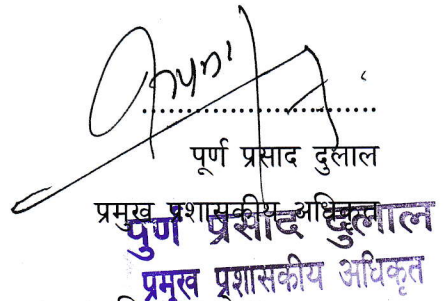 .......................................
पूर्ण प्रसाद दुलाल
प्रमुख प्रशासकीय अधिकृत
पुर्ण प्रसाद दुलाल
प्रमुख प्रशासकीय अधिकृत